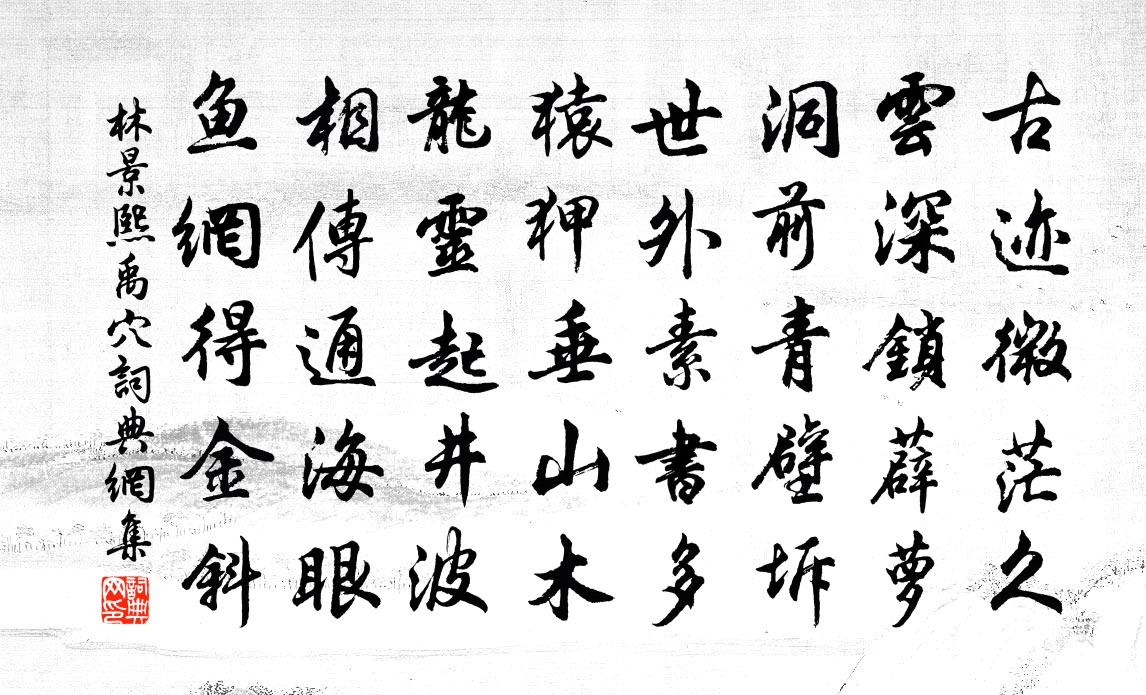 古迹微茫久
雲深鎖薜蘿
洞前青壁坼
世外素書多
猿狎垂山木
龍靈起井波
相傳通海眼
魚網得金斜
林景熙禹穴詞典網集
詞典網印